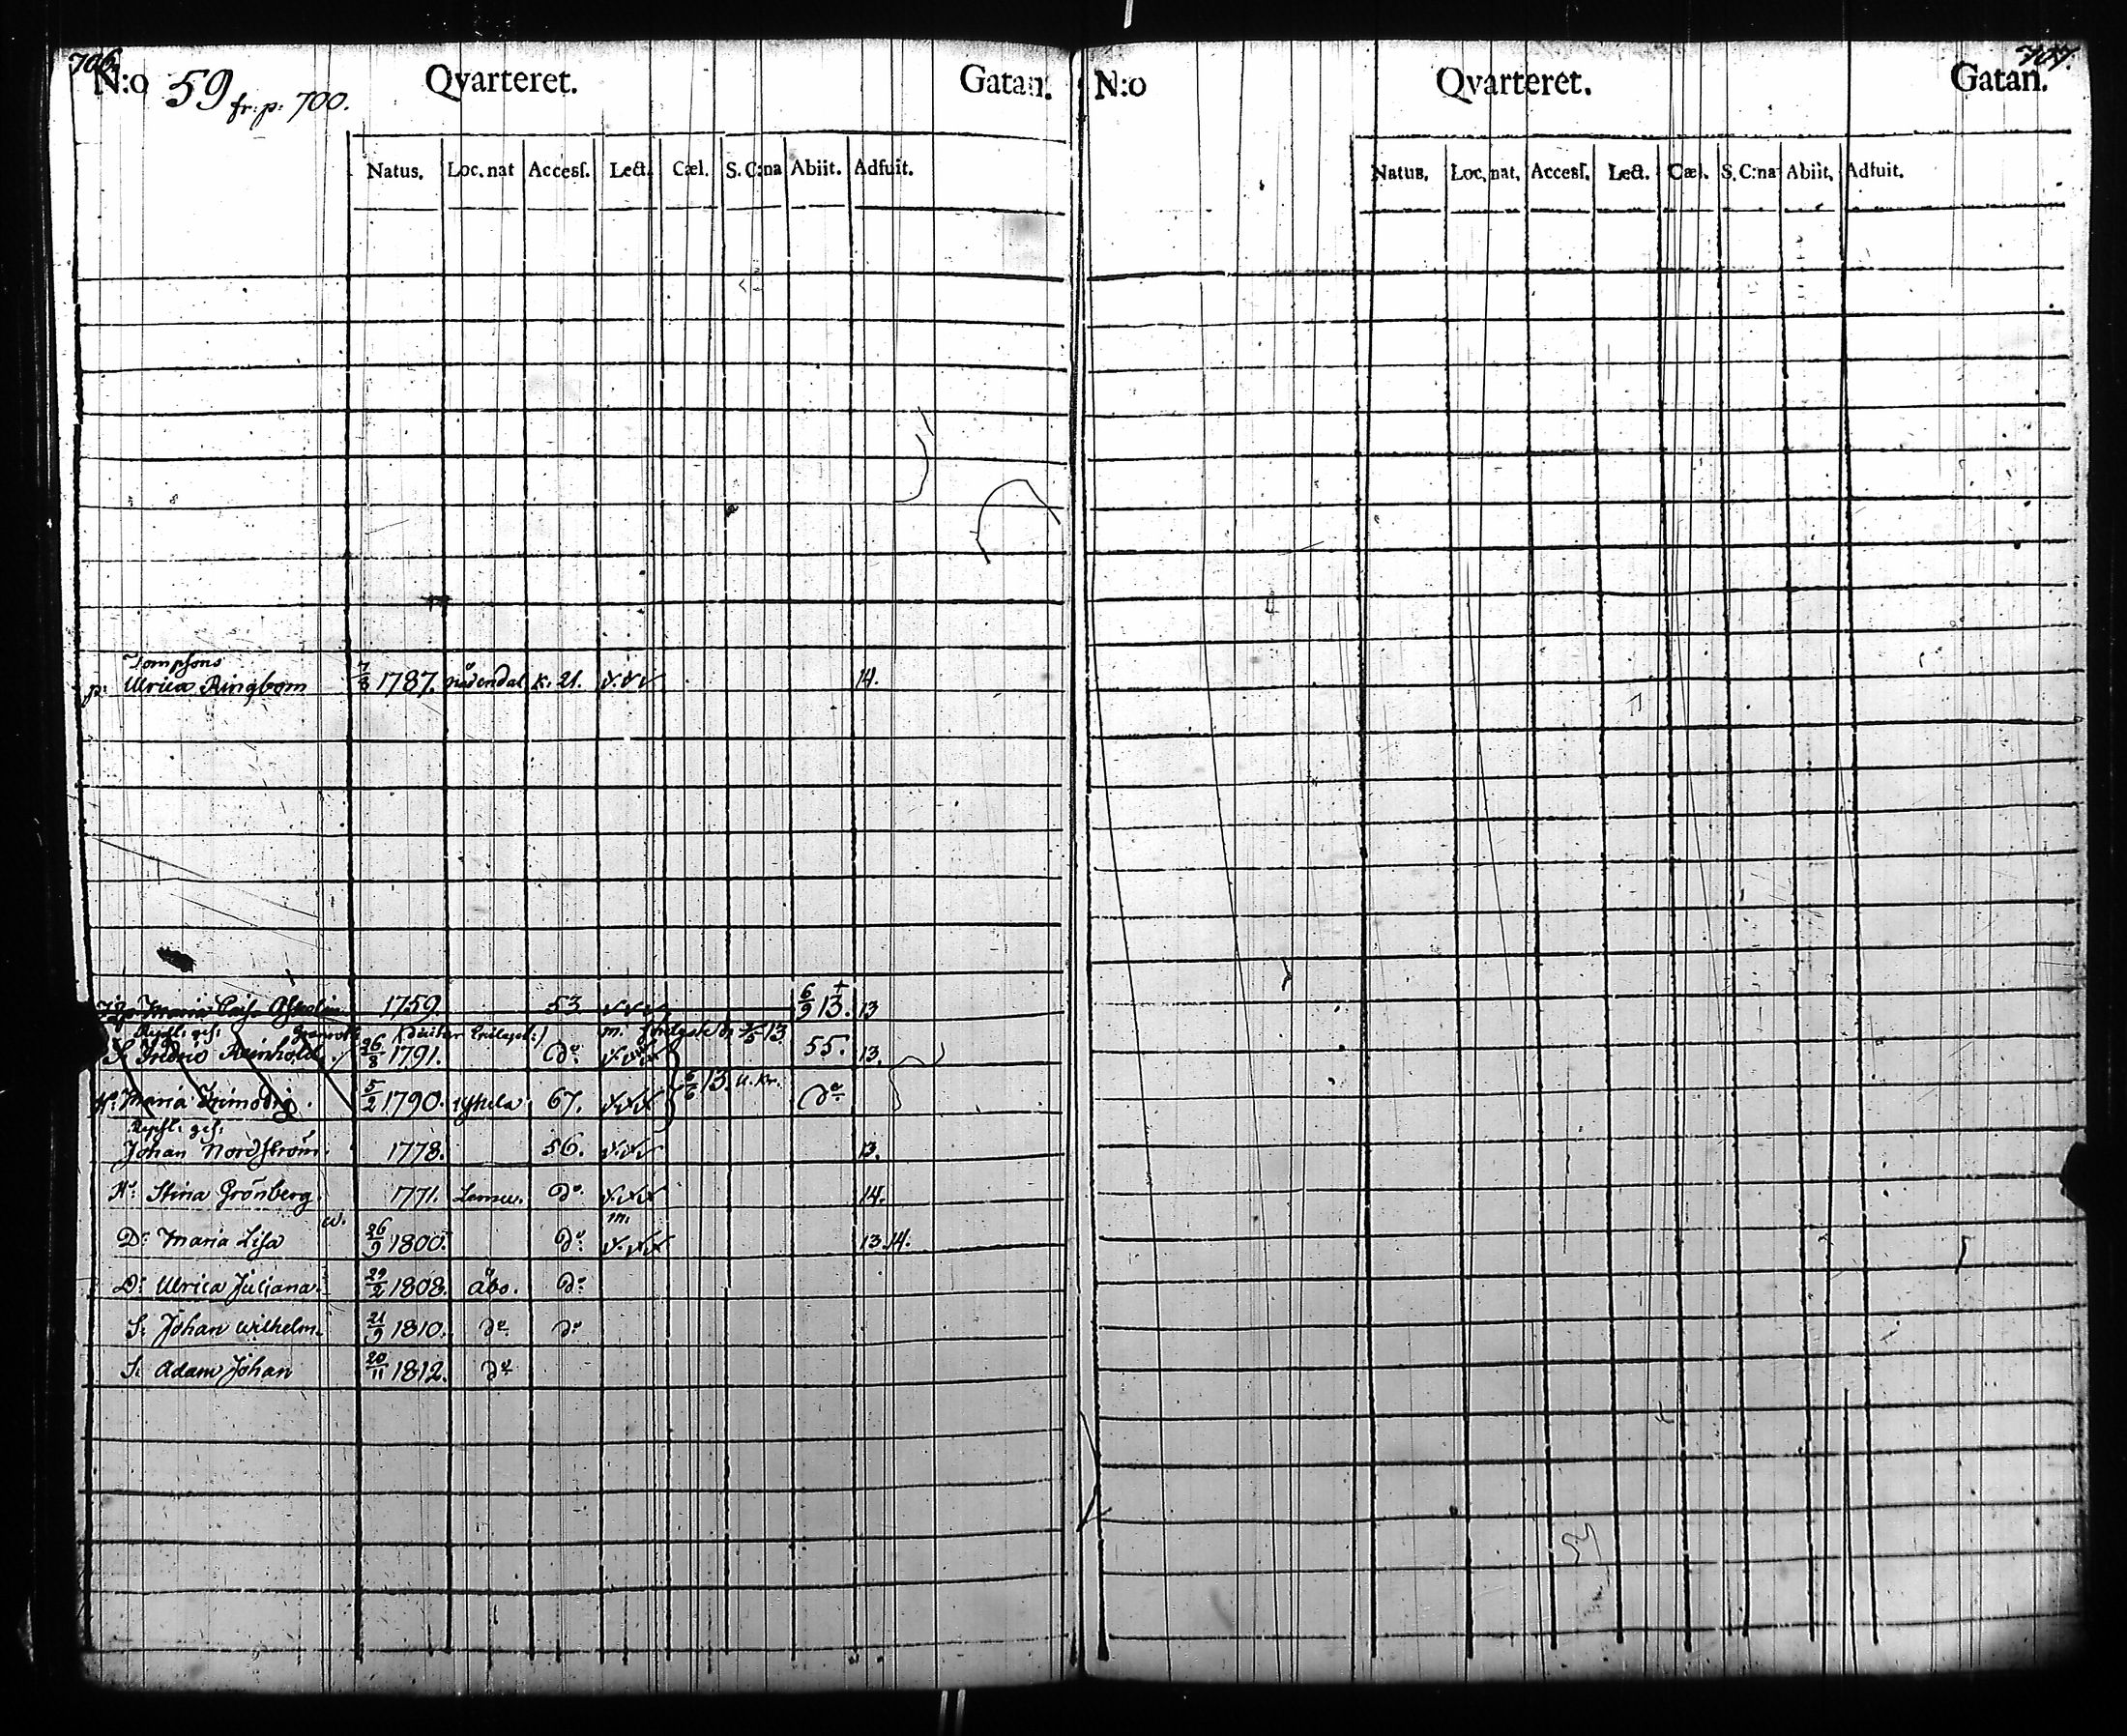 706.
N:o 59 fr: p: 700. Qvarteret. Gatan.
Natus. Loc. nat Accesſ. Lect. Cæl. S. C:na Abiit. Adfuit.
Tompsons
p: Ulrica Ringbom 7/8 1787. nådendal K. 21. 14.
Maria Caisa 1759. 53 6/9 13. † 13
Repſl: geſ: m. 13
S. Fredric Reinhold 26/8 1791. do 55. 13.
6/6 13. u. kr.
H: Maria Frimodig. 5/2 1790. 67. do
Repſl: geſ:
Johan Nordström. 1778. 56. 13.
H: Stina Grönberg. 1771. Lemu. do 14.
w. m.
D: Maria Lisa 26/9 1800. do 13.14.
D: Ulrica Juliana. 29/2 1808. åbo. do
S: Johan Wilhelm. 21/9 1810. do do
S: Adam Johan 20/11 1812. do
707.
N:o Qvarteret. Gatan.
Natus. Loc. nat. Accesſ. Lect. Cæl. S. C:na Abiit. Adfuit.